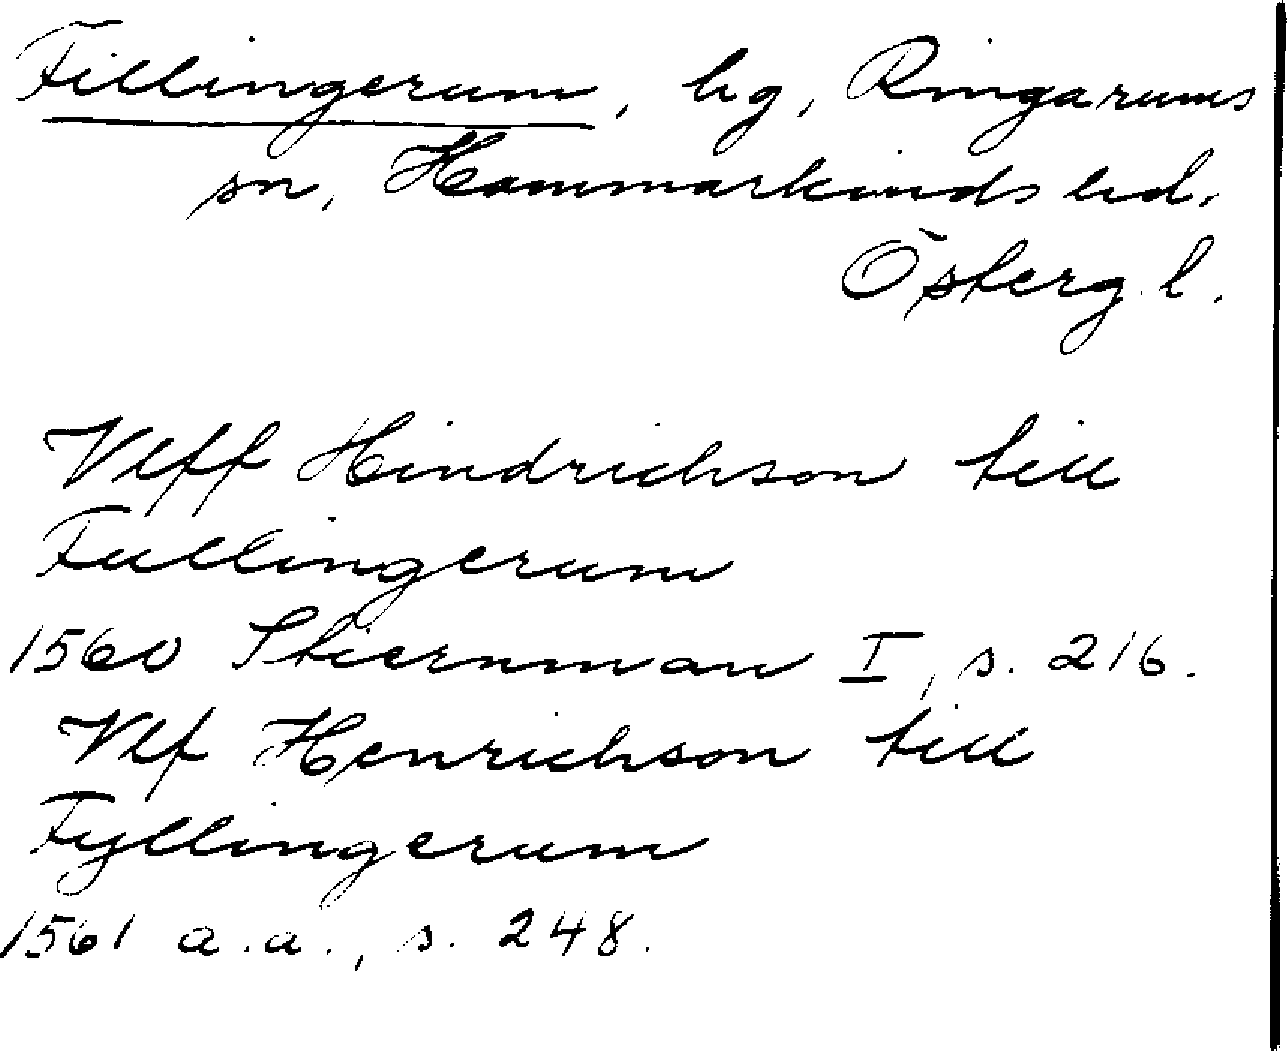 Fillingerum, hg, Ringarums
sn, Hammarkinds hd.
Österg.l.
Vlff Hindrichson till
Fullingerum
1560 Stiernman I, s. 216.
Vlf Henrichson till
Fyllingerum
1561 a.a., s. 248.